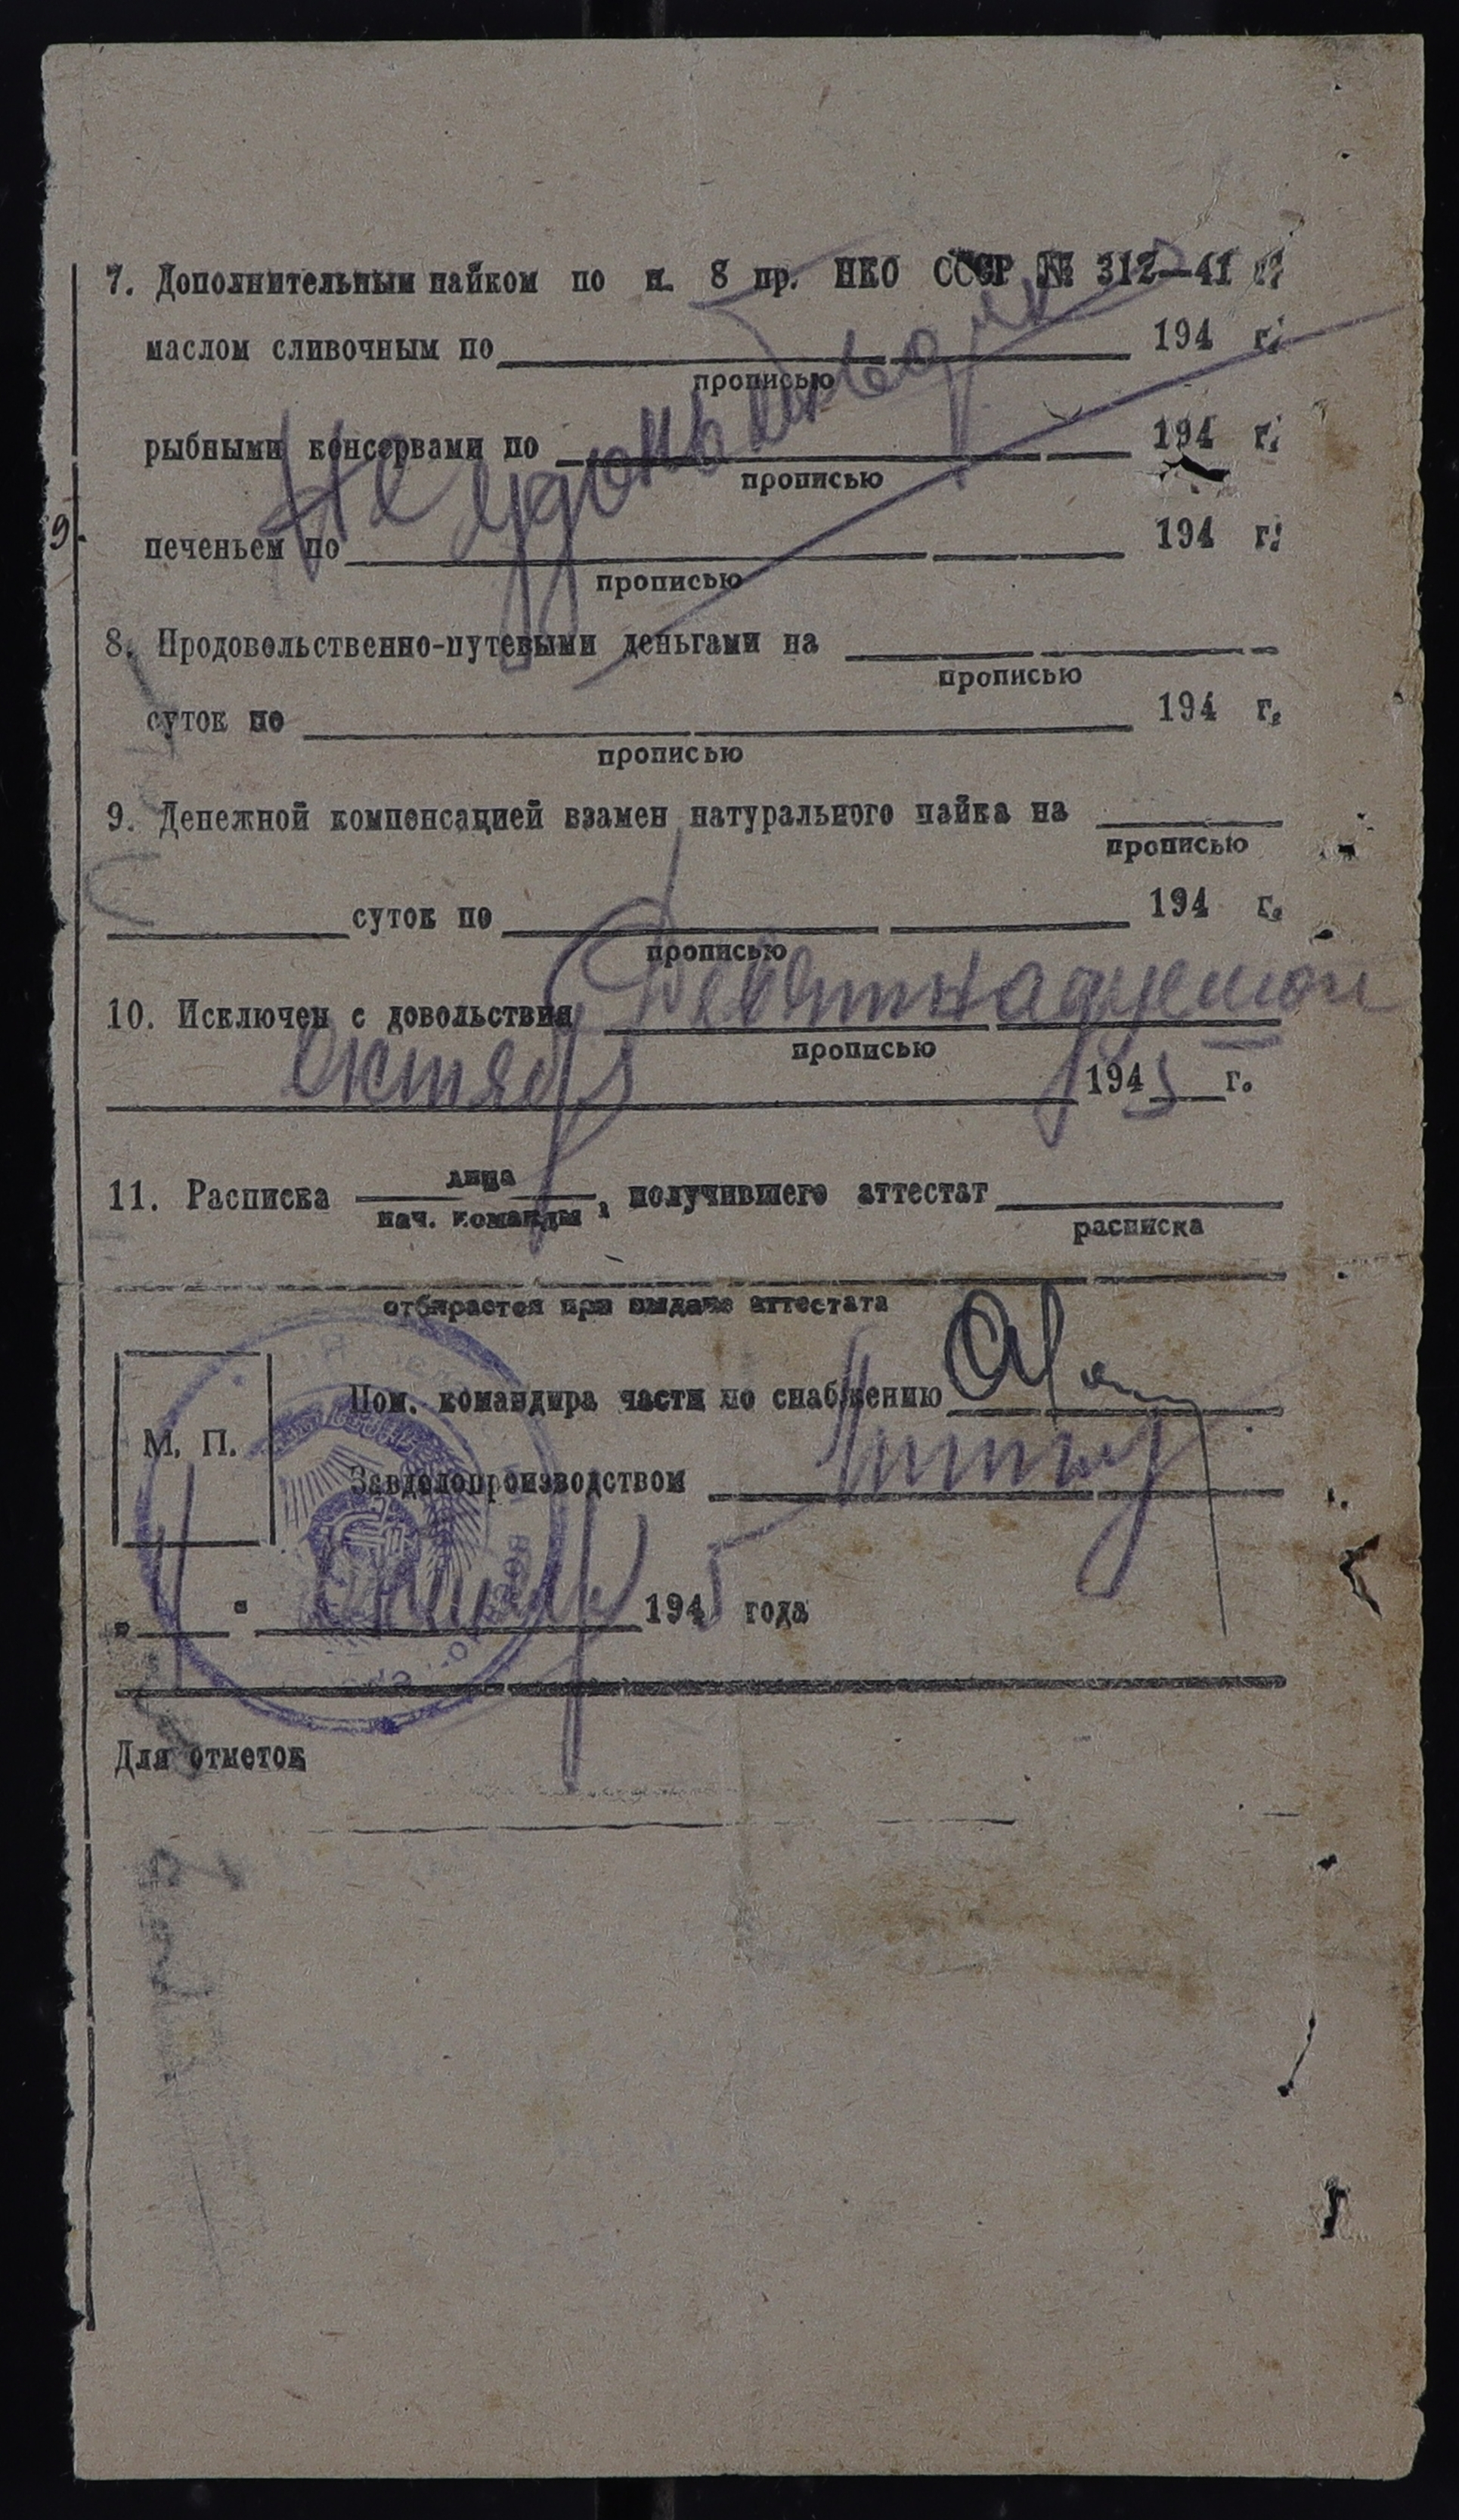 7. Дополнительным пайком по п. 8 пр. НКО СССР № 312—41 г.
маслом сливочным по 194 г.
прописью
рыбными консервами по 194 г.
прописью
Не удовлетворялся
9.
печеньем по 194 г.
прописью
8. Продовольственно-путевыми деньгами на
прописью
суток по 194 г.
прописью
9. Денежной компенсацией взамен натурального пайка на
прописью
суток по 194 г.
прописью
10. Исключен с довольствия Девятнадцатого
прописью
Октября 1945 г.
11. Расписка лица
нач. команды, получившего аттестат
расписка
отбирается при выдаче аттестата
Пом. командира части по снабжению
М. П.
Завделопроизводством
" " 1945 года
Для отметок